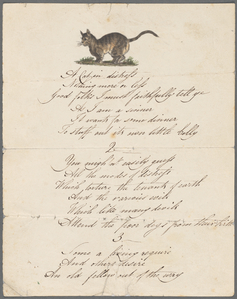 A Cat in distress
Nothing more or less
Good folks I must faithfully tell ye
As I am a sinner
It wants for some dinner
To stuff out its own little belly
2.
You might not easily guess
All the modes of distress
Which torture the tenants of earth
And the various evils
Which like many devils
Attend the poor dogs from their birth
3
Some a living require
And others desire
An old fellow out of the way